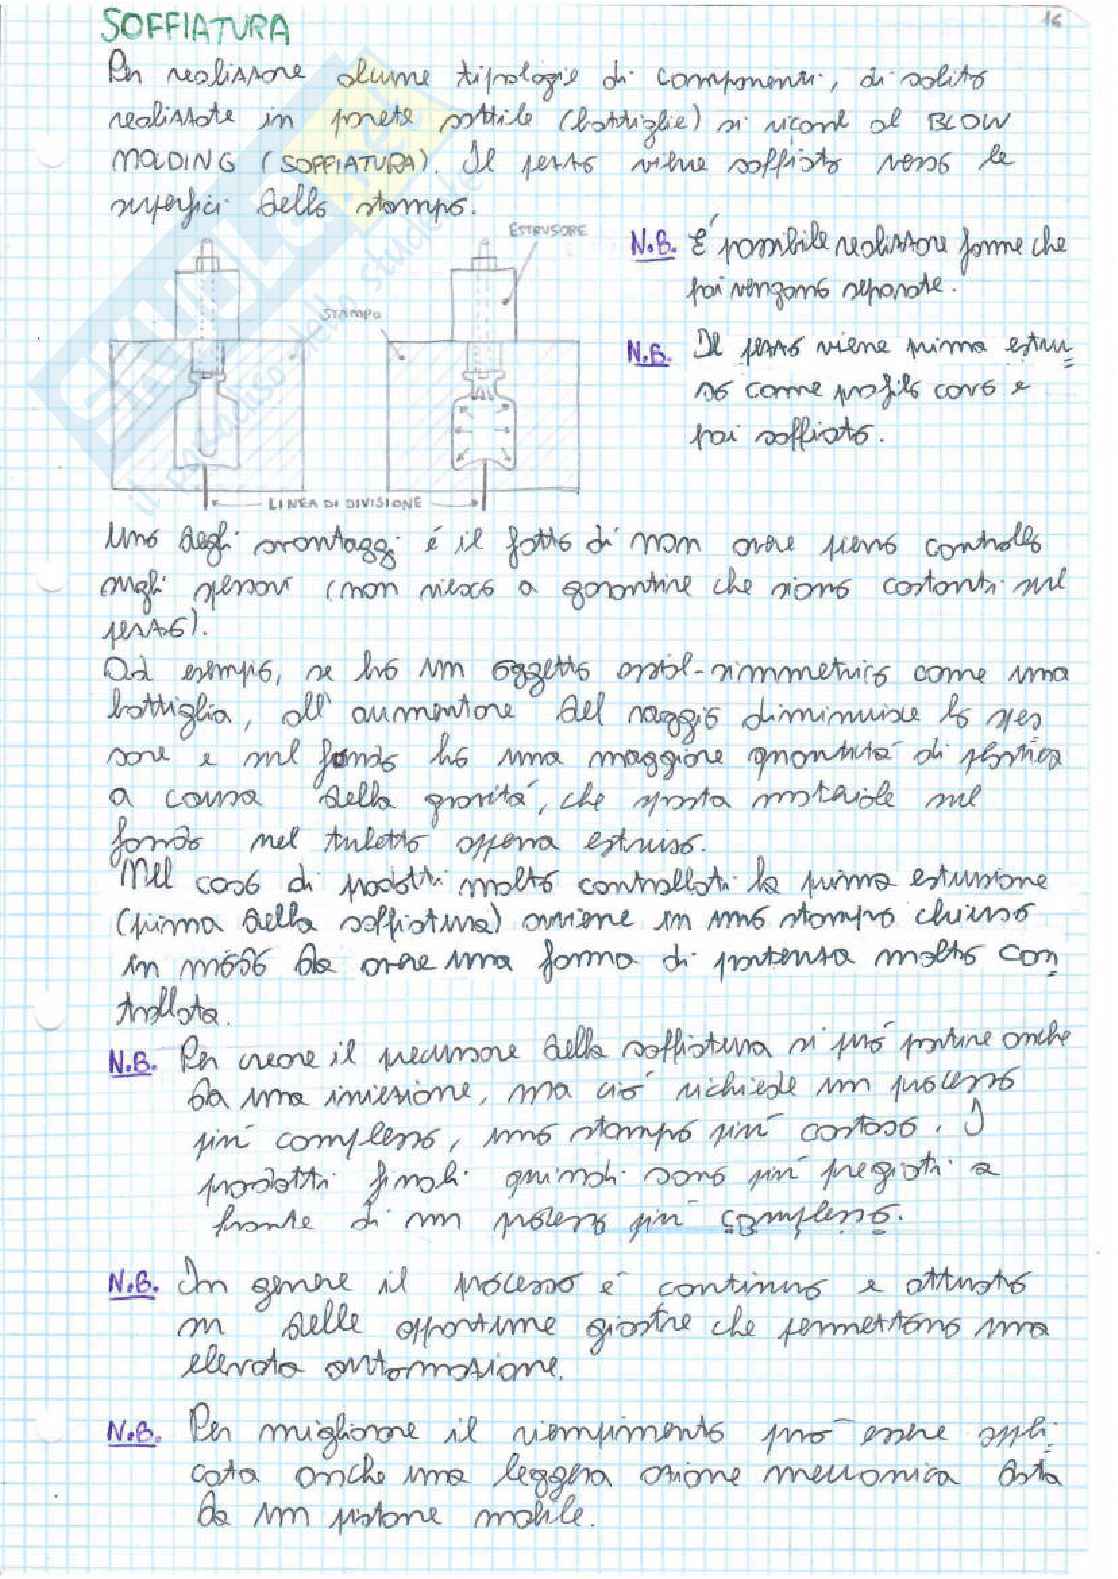 SOFFIATURA
16
Per realizzare alcune tipologie di componenti, di solito
realizzate in parete sottile (bottiglie) si ricorre al BLOW
MOLDING (SOFFIATURA). Il pezzo viene soffiato verso le
superfici dello stampo.
ESTRUSORE
STAMPO
LINEA DI DIVISIONE
N.B. É possibile realizzare forme che
poi vengono separate.
N.B. Il pezzo viene prima estru-
so come profilo cavo e
poi soffiato.
Uno degli svantaggi é il fatto di non avere pieno controllo
sugli spessori (non riesco a garantire che siano costanti sul
pezzo).
Ad esempio, se ho un oggetto assial-simmetrico come una
bottiglia, all'aumentare del raggio diminuisce lo spes
sore e sul fondo ho una maggiore quantitá di plastica
a causa della gravitá, che sposta materiale sul
fondo nel tubetto appena estruso.
Nel caso di prodotti molto controllati la prima estrusione
(prima della soffiatura) avviene in uno stampo chiuso
in modo da avere una forma di partenza molto con
trollata.
N.B. Per creare il precursore della soffiatura si puó partire anche
da una iniezione, ma ció richiede un processo
piú complesso, uno stampo piú costoso. I
prodotti finali quindi sono piú pregiati a
fronte di un processo piú complesso.
N.B. In genere il processo é continuo e attuato
su delle opportune giostre che permettono una
elevata automazione.
N.B. Per migliorare il riempimento puó essere appli
cata anche una leggera azione meccanica data
da un pistone mobile.
SKUOLA.net
il paradiso dello studente